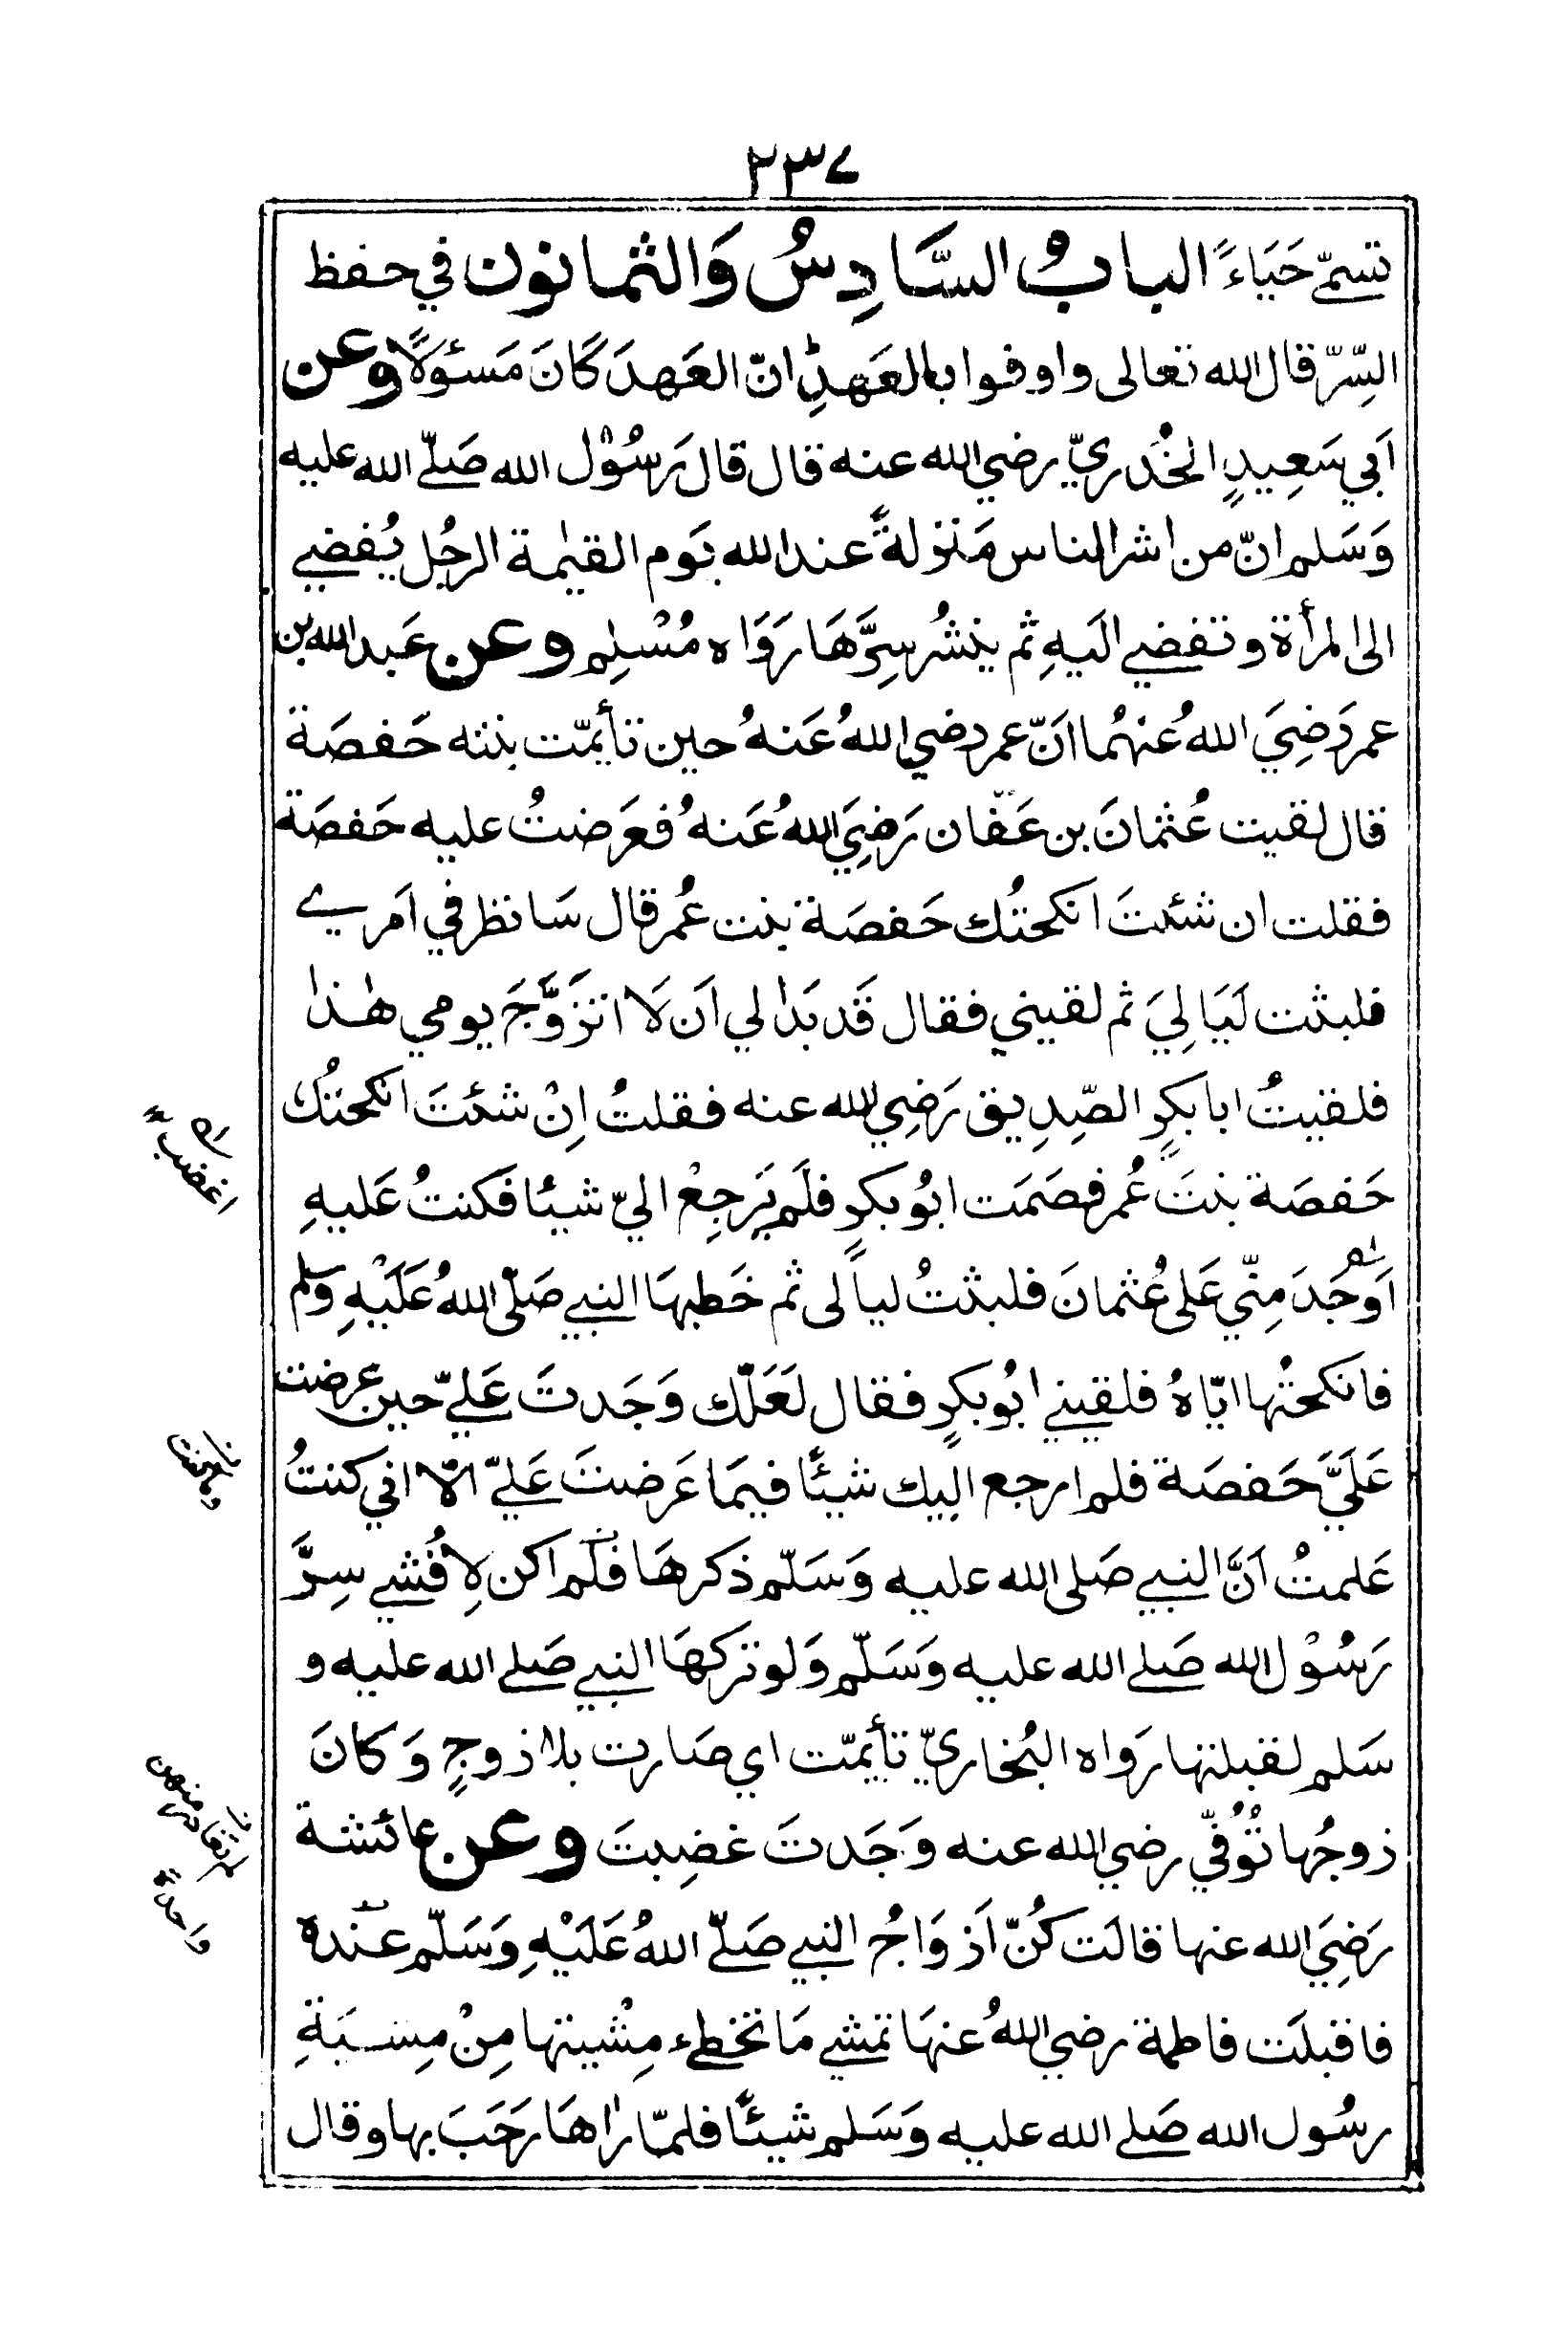 ٢٣٧
تسمّى حَيَاءً الباب السَّادِسُ وَالثمانون في حفظ
السِّرّ قال الله تعالى واوفوا بالعَهدِ انّ العَهدَ كَانَ مَسئولًا وعن
اَبي سَعِيدٍ الخُدريّ رضي الله عنه قال قال رَسُوْل الله صَلّى الله عليه
وَسَلم انّ من اشر الناس مَنزلةً عند الله يَوم القيٰمة الرجُل يُفضي
الى المرأة وتفضي اليَهِ ثم ينشُر سِرَّهَا رَوَاه مُسْلِم وعن عَبد الله بن
عمر رَضِيَ اللهُ عَنهُما انّ عمر رضي اللهُ عَنهُ حين تأيمّت بنته حَفصَة
قال لقيت عُثمانَ بن عَفّان رَضِيَ اللهُ عَنهُ فعَرَضتُ عليه حَفصَة
فقلت ان شئتَ انكحتُك حَفصَة بنت عُمر قال سَانظر في اَمري
فلبثت لَيَالِيَ ثم لقيني فقال قَد بَدا لي اَن لَا اتزَوَّجَ يومي هٰذا
فلقيتُ ابا بكرٍ الصّدِيق رَضِي الله عنه فقلتُ اِنْ شئتَ انكحتُك
حَفصَة بنتَ عُمر فصَمَت ابُو بكرٍ فلَم يَرجِعْ اليّ شيئا فكنتُ عَليهِ
اَوجَدَ مِنّي عَلى عُثمانَ فلبثتُ ليالى ثم خَطبهَا النبي صَلّى اللهُ عَلَيْهِ وسلم
فانكحتُها ايّاهُ فلقيني ابُو بكرٍ فقال لعَلّك وَجَدتَ عَليّ حين عرضت
عَلَيَّ حَفصَة فلم ارجع اليك شيئًا فيمَا عَرَضتَ عَليّ الّا اني كنتُ
عَلمتُ اَنَّ النبي صَلى الله عليه وَسَلّم ذكرهَا فلَم اكن لِاُفشي سِرَّ
رَسُوْل الله صَلى الله عليه وَسَلّم وَلو تركهَا النبي صَلى الله عليه و
سَلم لقبلتها رَواه البُخاريّ تأيمّت اي صَارت بلا زوجٍ وَكانَ
زوجُها تُوُفّي رضي الله عنه وَجَدتَ غضِبتَ وعن عائشة
رَضِيَ الله عنها قالَت كُنّ اَزوَاجُ النبي صَلّى اللهُ عَلَيْهِ وَسَلّم عندهٗ
فاقبلَت فاطمة رضي اللهُ عنهَا تمشي مَا تخطئ مِشْيتها مِنْ مِشيَةِ
رسُول الله صَلى الله عليه وَسَلم شيئًا فلمّا راٰهَا رَحَبَ بها وقال
اغضب
منهن
واحدة